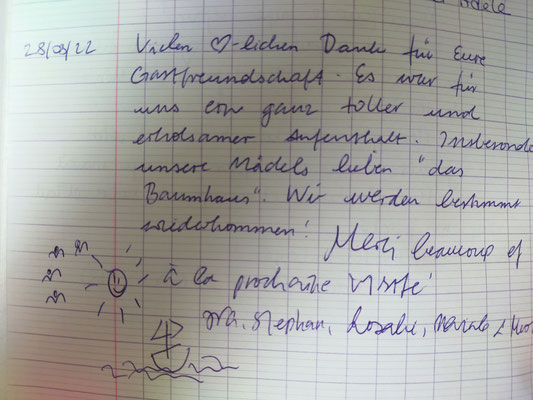 dèle
28/08/22 Vielen ♡-lichen Dank für Eure
Gastfreundschaft. Es war für
uns ein ganz toller und
erholsamer Aufenthalt. Insbesonde
unsere Mädels lieben "das
Baumhaus". Wir werden bestimmt
wiederkommen! Merci beaucoup et
à la prochaine visite
Stephan, Rosalie,